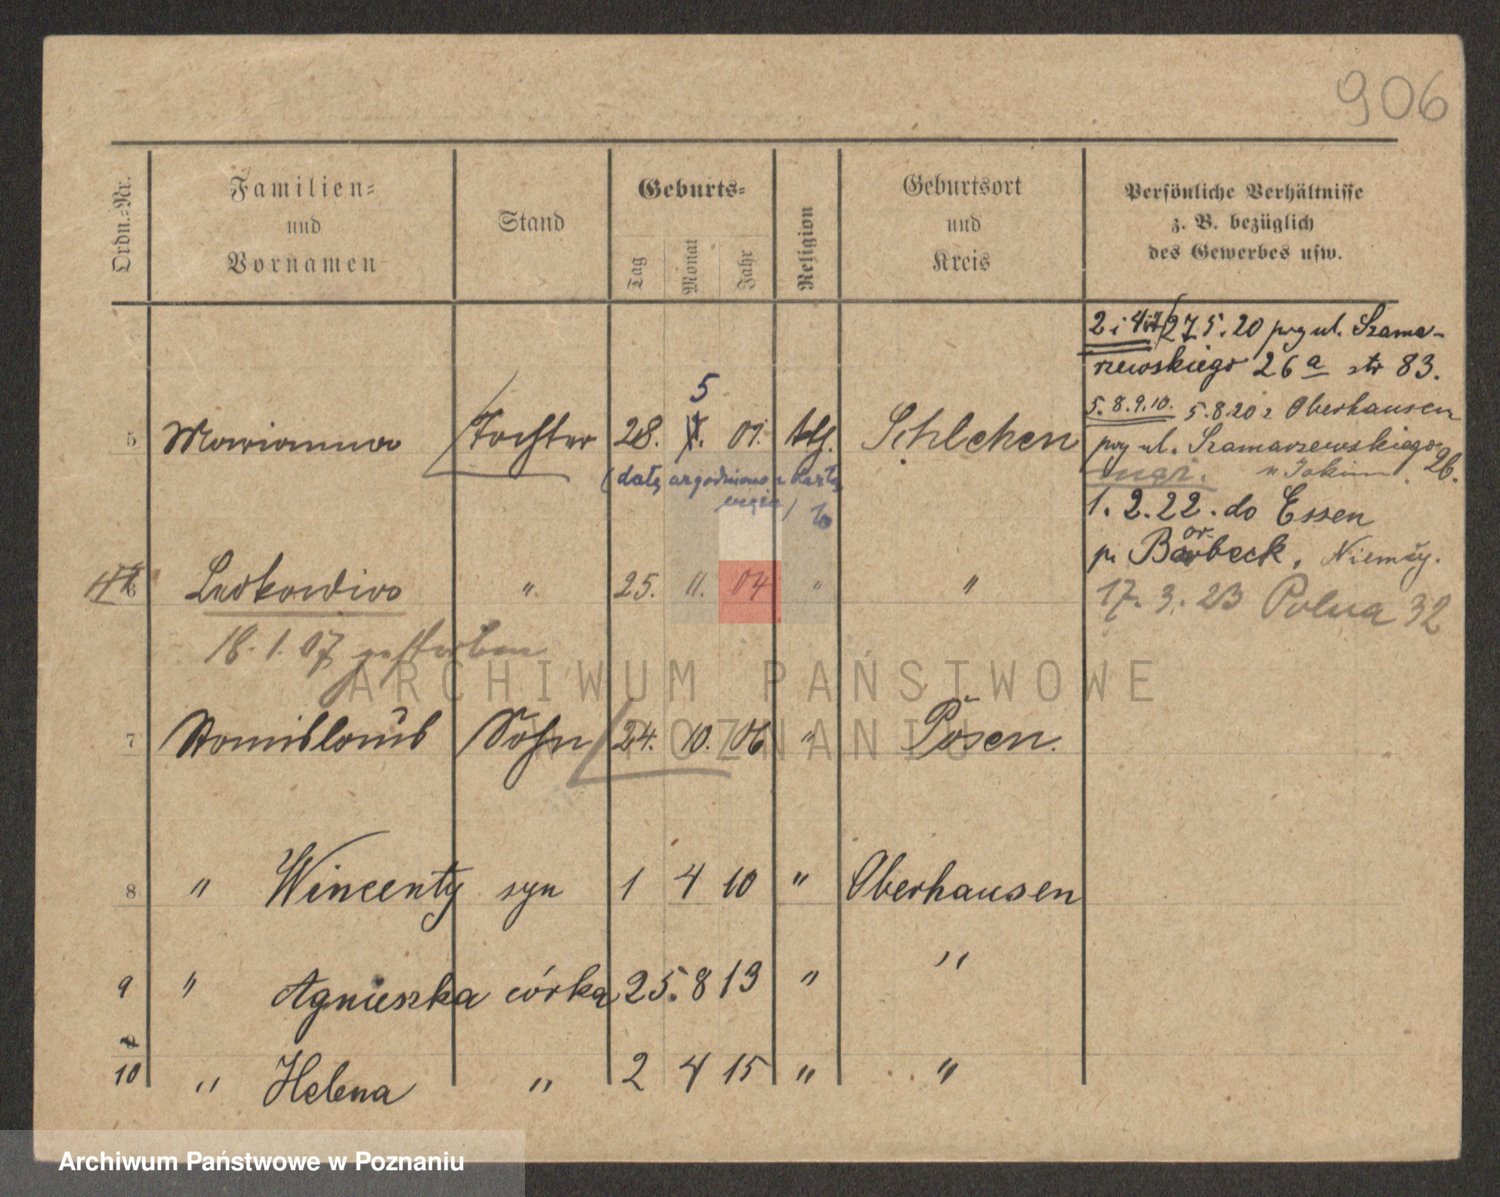 906
Ordn.=Nr.
Familien=
und
Vornamen
Stand
Geburts=
Tag
Monat
Jahr
Religion
Geburtsort
und
Kreis
Persönliche Verhältnisse
z. B. bezüglich
des Gewerbes usw.
2 i 4 27.5.20 ul. Szama-
rzewskiego 26 a str 83.
5. 8. 9. 10. 5.8.20 z Oberhausen
ul. Szamarzewskiego
26.
1. 2. 22. do Essen
p. Borbeck, Niemcy.
17. 3. 23 Polna 32
5
5 Marianna Tochter 28. 01. kth. Schlehen
(datę uzgodniono z kartą
6 " 25. 11. 04 " "
18. 1. 07 gestorben
7 Stanislaus Sohn 24. 10. 06 " Posen.
8 " Wincenty syn 1 4 10 " Oberhausen
9 " Agnieszka córka 25. 8 13 " "
10 " Helena " 2 4 15 " "
ARCHIWUM PAŃSTWOWE
W POZNANIU
Archiwum Państwowe w Poznaniu